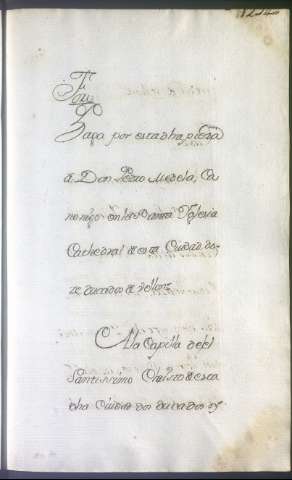 Paga por esta dha pieza
a Don Pedro Mezela, Ca
nonigo en la Santa Yglesia
Cathedral de esta Ciudad do-
ze ducados de vellon
A la Capilla del
Santissimo Christo de esta
dha Ciudad dos ducados